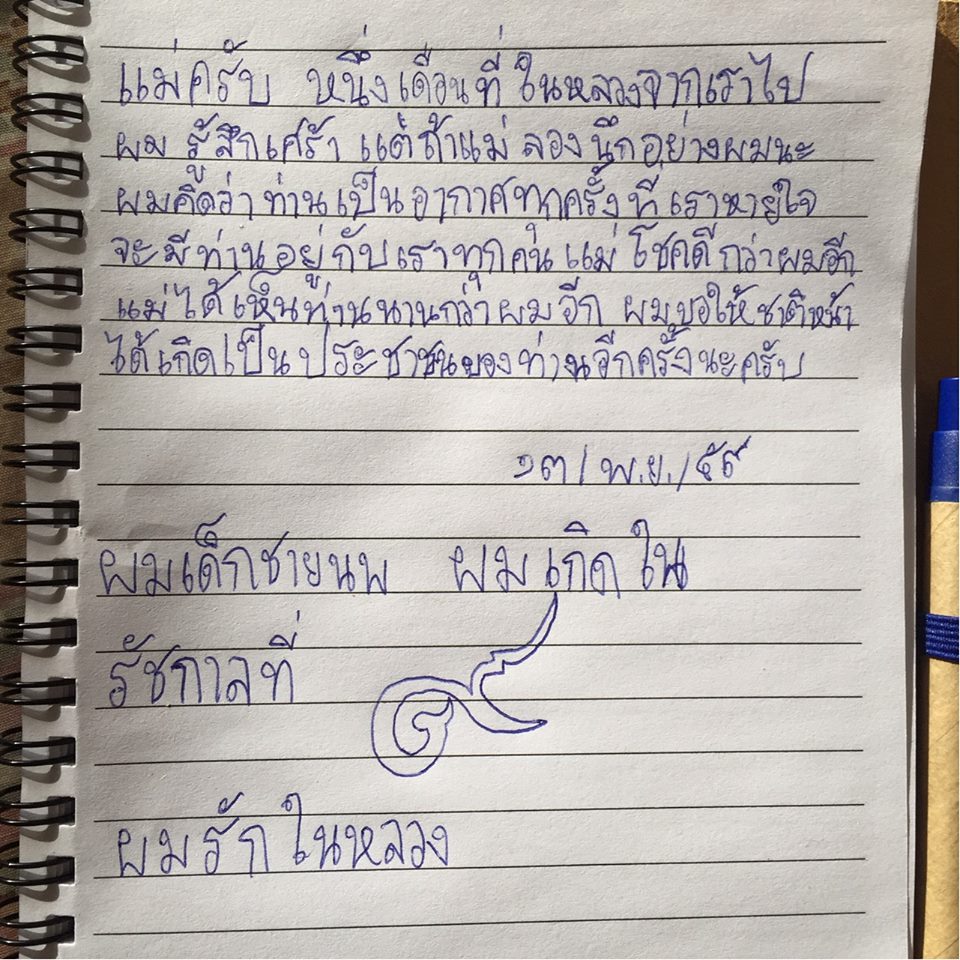 แม่ครับ หนึ่งเดือนที่ ในหลวงจากเราไป
ผม รู้สึกเศร้า แต่ถ้าแม่ ลองนึกอย่างผมนะ
ผมคิดว่า ท่านเป็น อากาศทุกครั้งที่ เราหายใจ
จะมีท่านอยู่กับเราทุกคน แม่ โชคดีกว่าผมอีก
แม่ได้เห็นท่านนานกว่าผมอีก ผมขอให้ชาติหน้า
ได้เกิดเป็นประชาชนของท่านอีกครั้งนะครับ
๑๓/พ.ย./๕๙
ผมเด็กชายนพ ผมเกิดใน
รัชกาลที่ ๙
ผมรักในหลวง